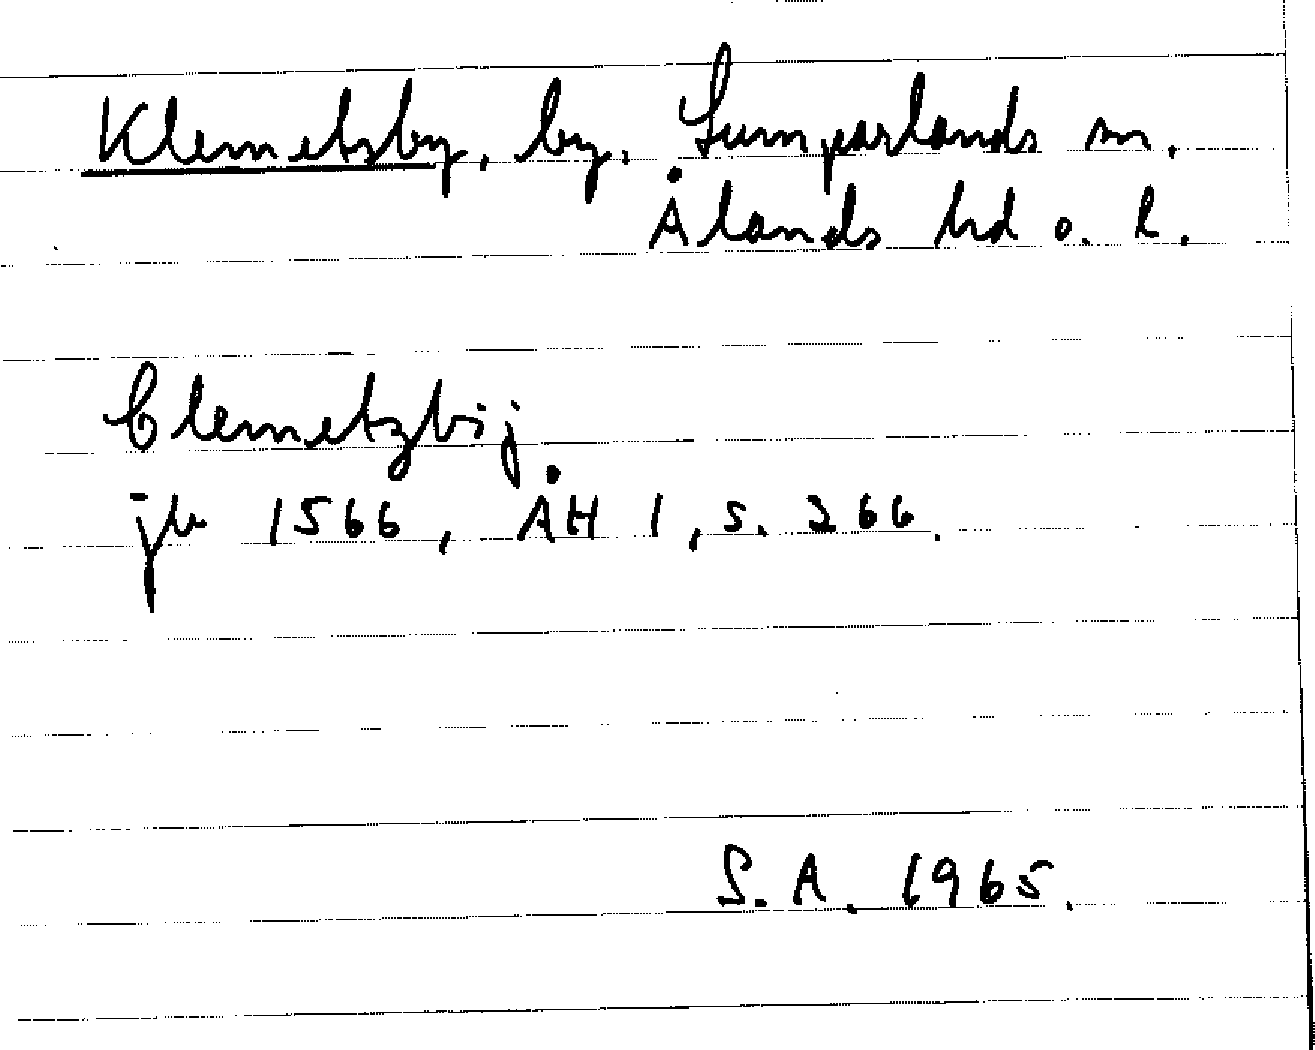 Klemetsby, by, Lumparlands sn.
Ålands hd o. l.
Clemetzbij
jb 1566, ÅH 1, s. 266.
S.A. 1965.